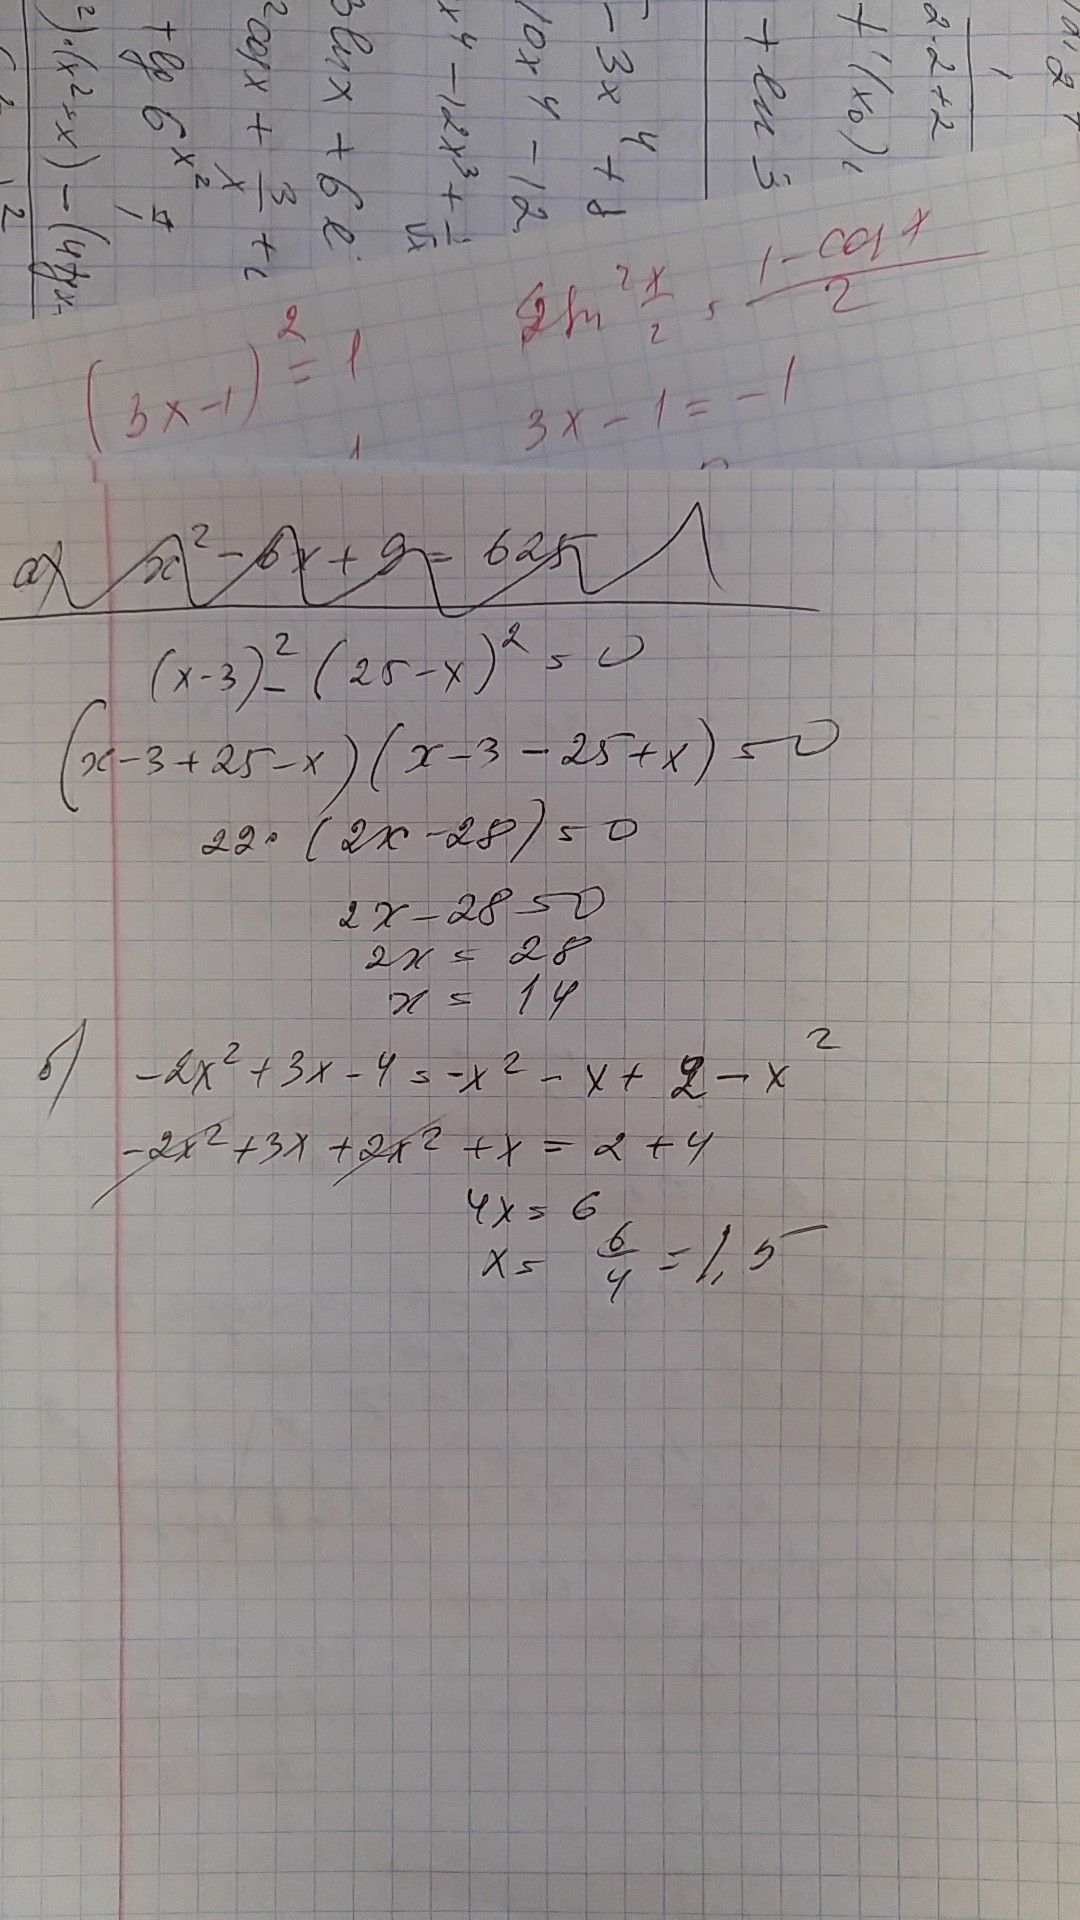 2·2+2
+ln 5
-3x⁴+
10x⁴-12
x⁴-12x³+1/√x
3lnx+6e
cosx+3/x+
+lg6x²
²)·(x²-x)-(4
(3x-1)²=1
sin²x/2=1-cosx/2
3x-1=-1
а) x²-6x+9=625
(x-3)²-(25-x)²=0
(x-3+25-x)(x-3-25+x)=0
22·(2x-28)=0
2x-28=0
2x=28
x=14
б) -2x²+3x-4=-x²-x+2-x²
-2x²+3x+2x²+x=2+4
4x=6
x=6/4=1,5